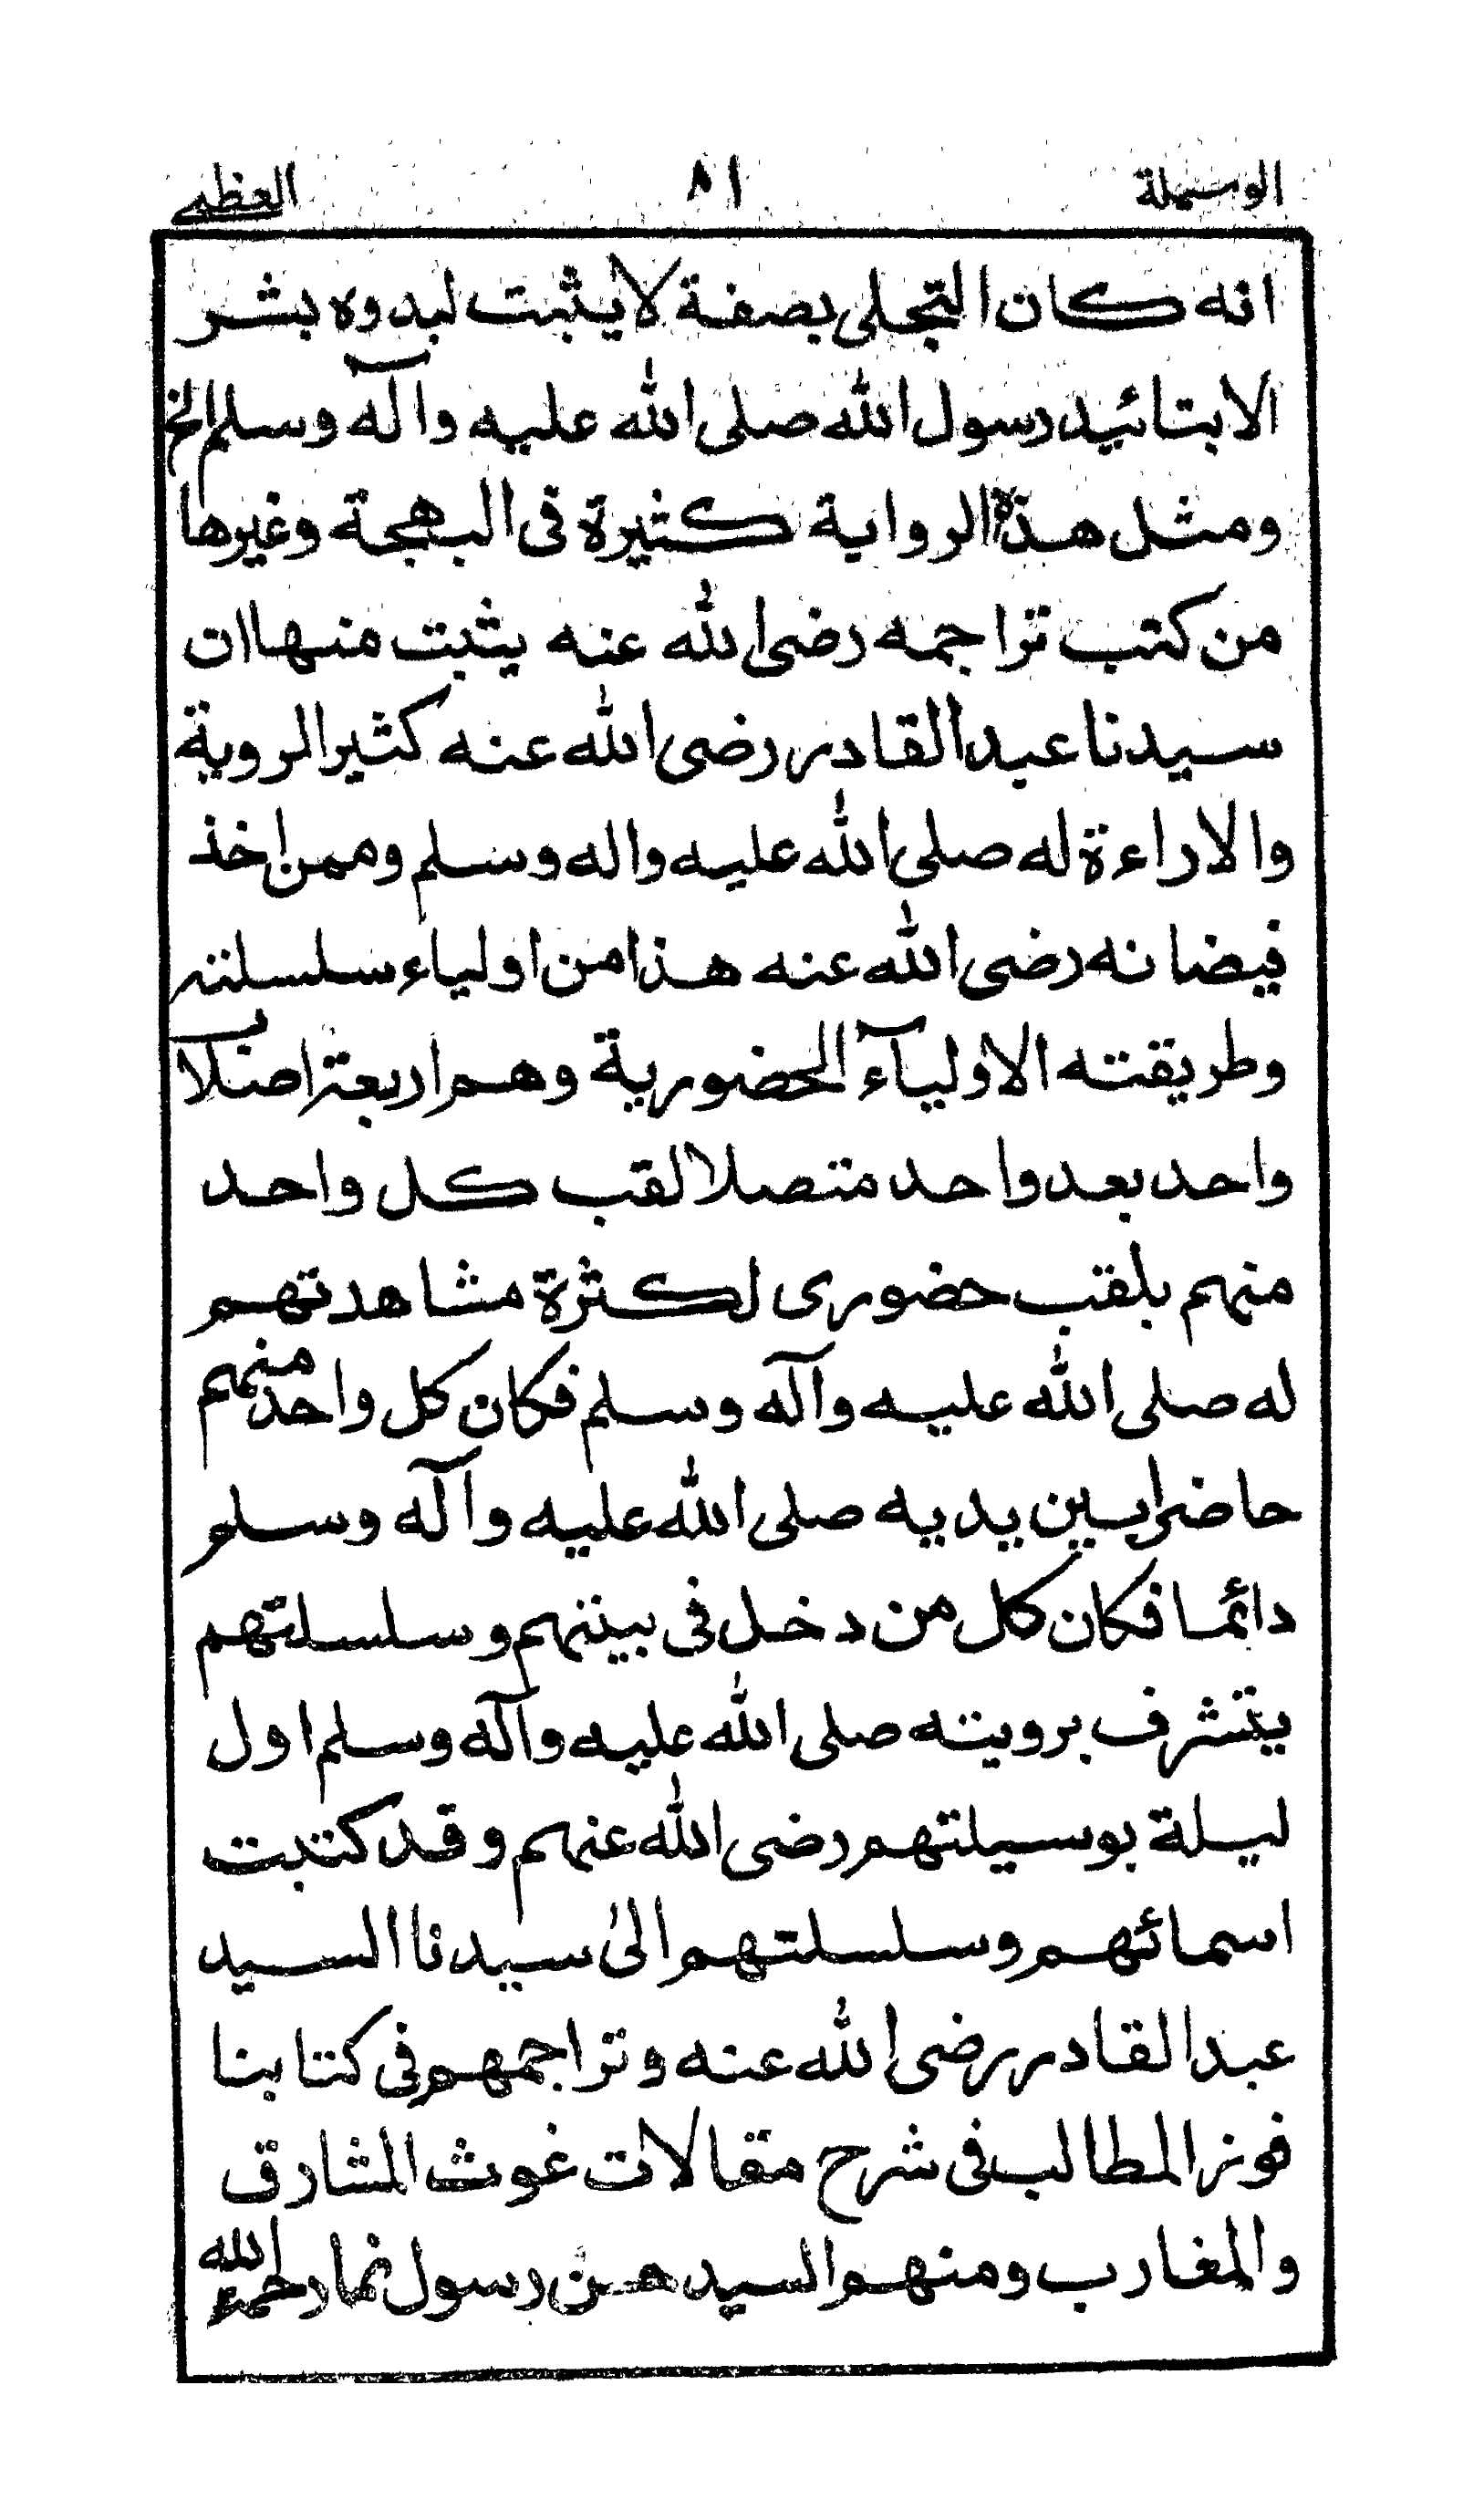 الوسيلة ٨١ العظمى
انه كان التجلى بصفة لا يثبت لبدوه بشر
الا بتائيد رسول الله صلى الله عليه وآله وسلم الخ
ومثل هذه الرواية كثيرة فى البهجة وغيرها
من كتب تراجمه رضى الله عنه يثبت منها ان
سيدنا عبد القادر رضى الله عنه كثير الروية
والاراءة له صلى الله عليه واله وسلم وممن اخذ
فيضانه رضى الله عنه هذا من اولياء سلسلته
وطريقته الاوليآء الحضورية وهم اربعة
واحد بعد واحد متصلا لقب كل واحد
منهم بلقب حضورى لكثرة مشاهدتهم
له صلى الله عليه وآله وسلم فكان كل واحد منهم
حاضرا بين يديه صلى الله عليه وآله وسلم
دائما فكان كل من دخل فى بيتهم وسلسلتهم
يتشرف برويته صلى الله عليه وآله وسلم اول
ليلة بوسيلتهم رضى الله عنهم وقد كتبت
اسمائهم وسلسلتهم الىٰ سيدنا السيد
عبد القادر رضى الله عنه وتراجمهم فى كتابنا
فوز المطالب فى شرح مقالات غوث المشارق
والمغارب ومنهم السيد حسن رسول نما رحمة الله